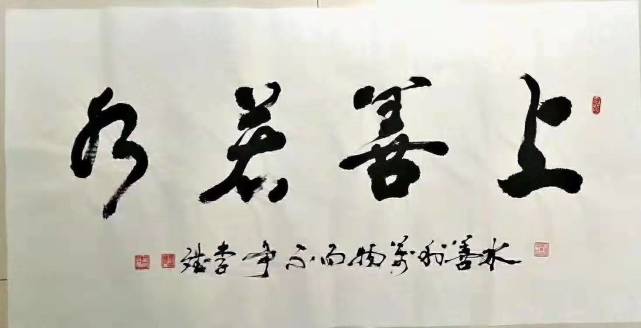 上善若水
水善利萬物而不争李